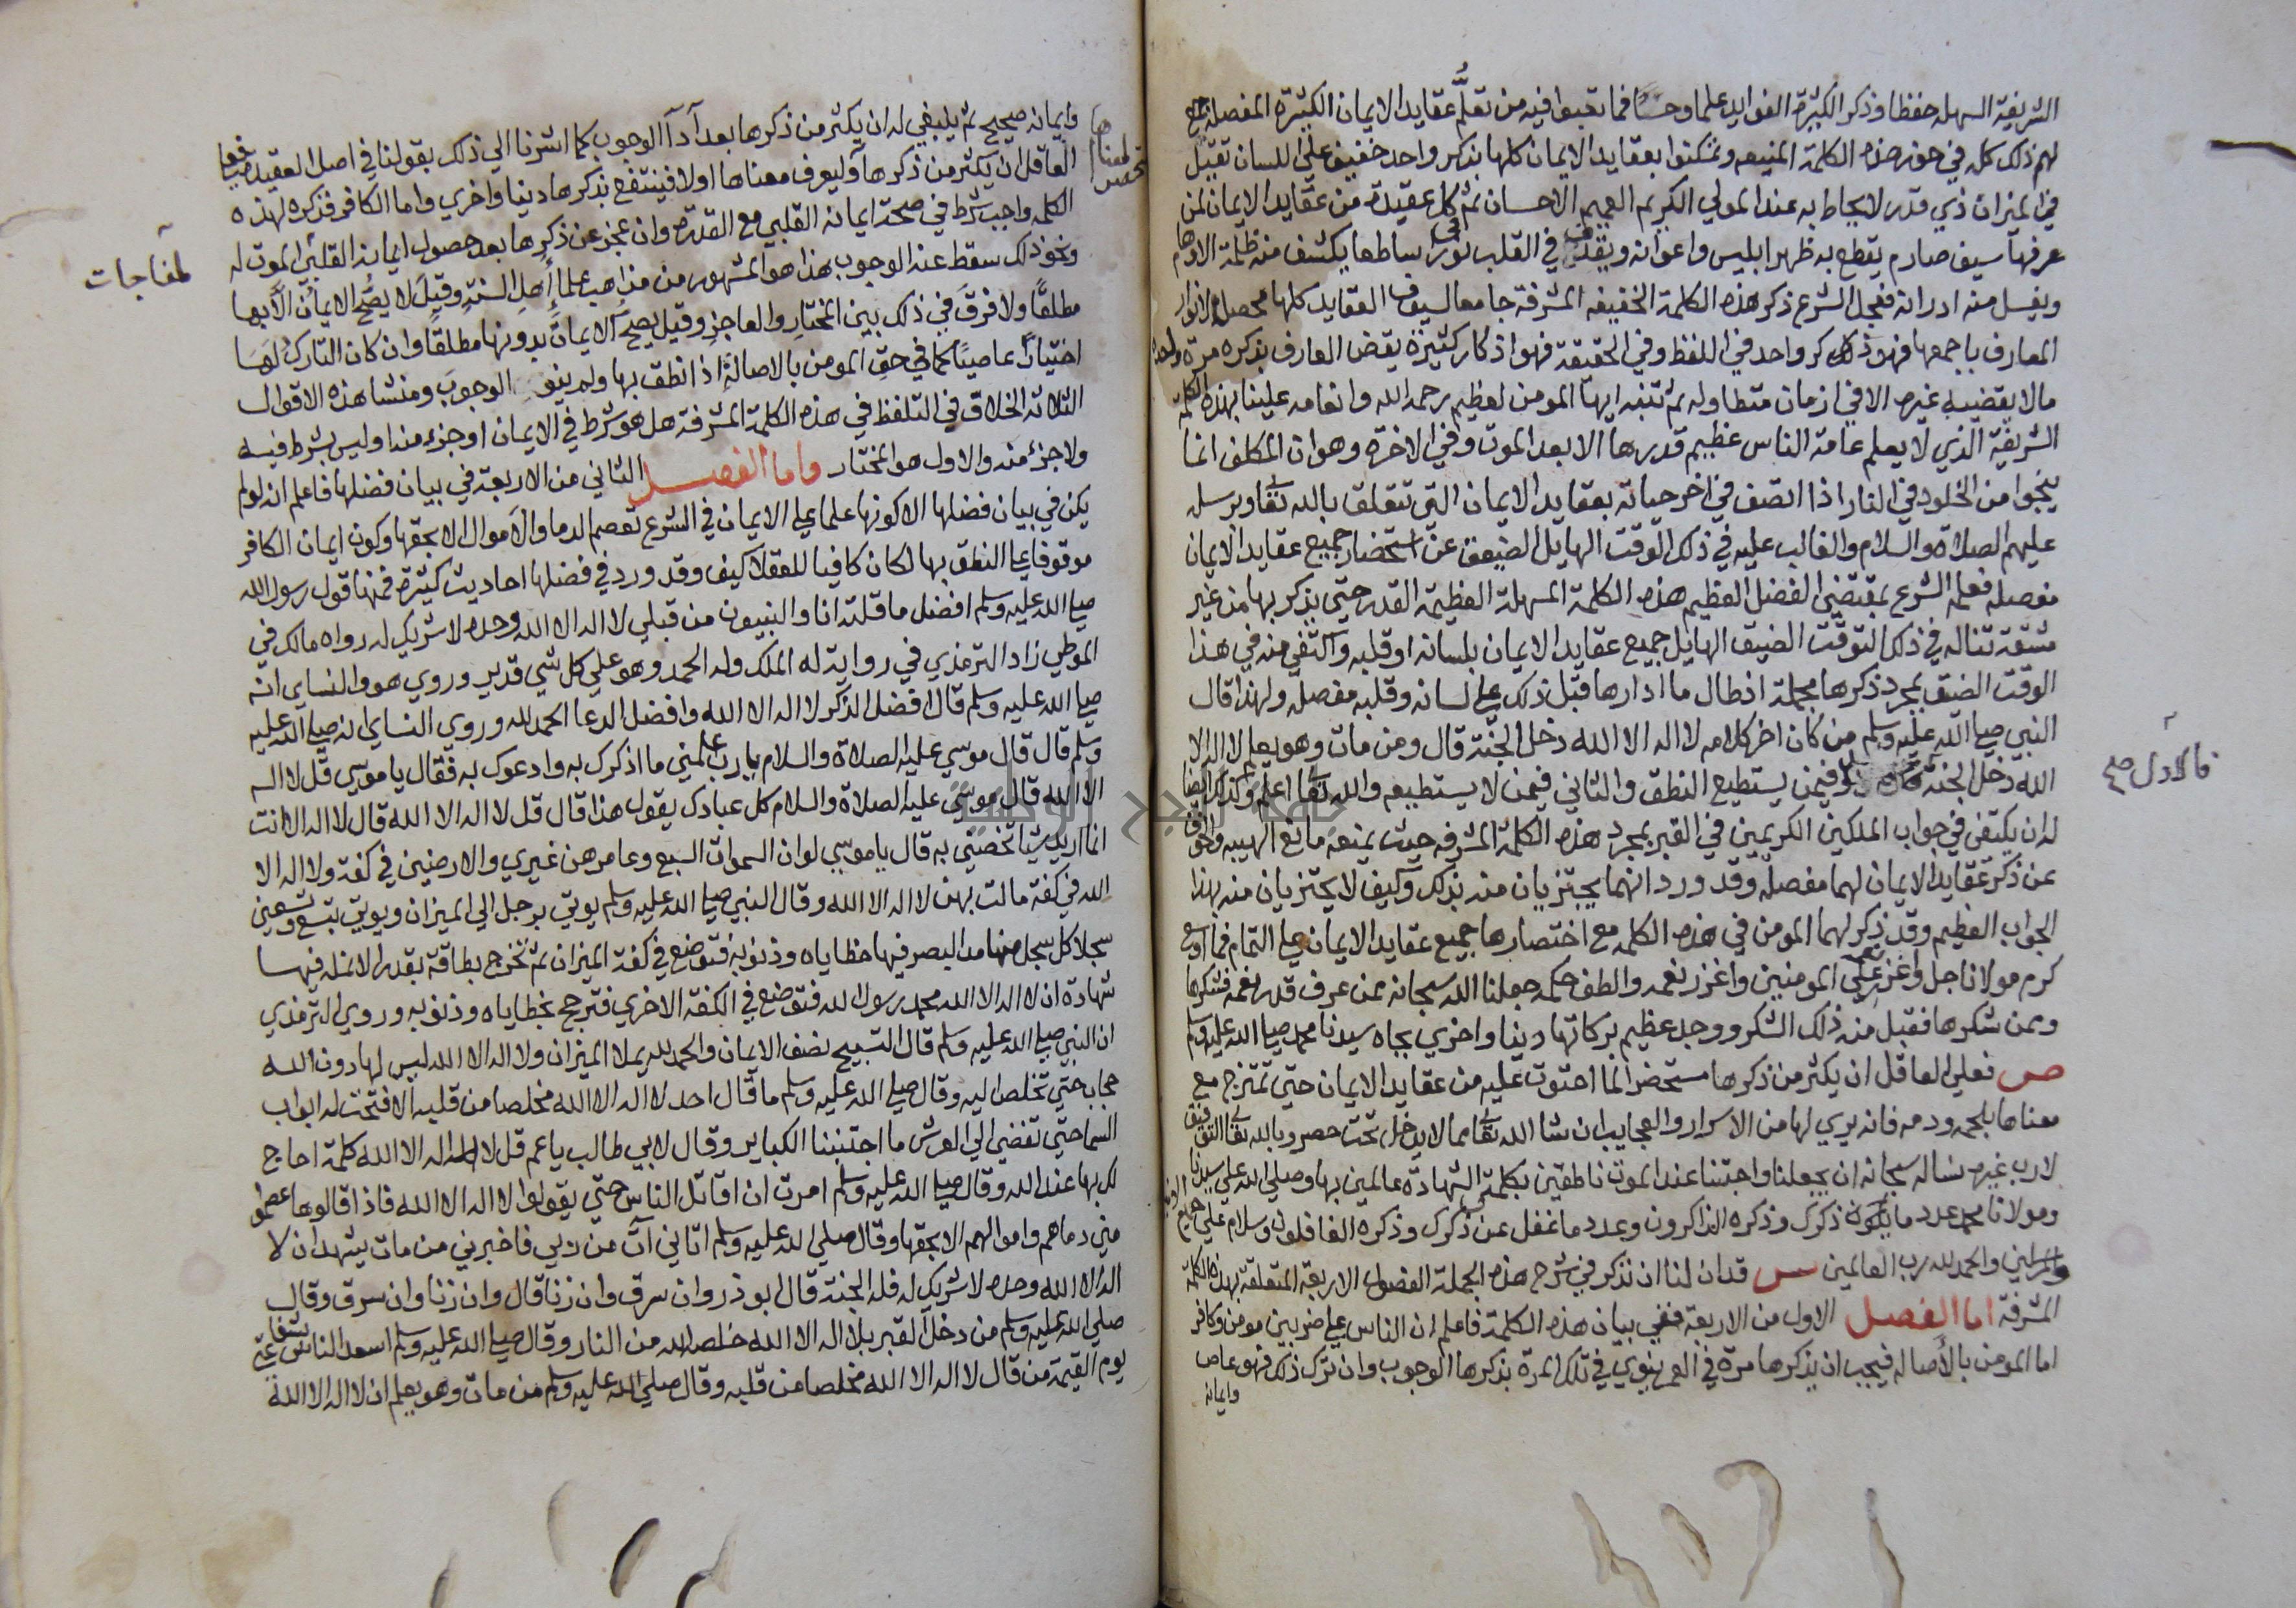 الشريفة السهله حفظا وذكر الكثيرة الفوايد علما وحسا فما تعبوا فيه من تعلم عقايد الايمان الكثيرة المفصله جمع
لهم ذلك كله في حوز هذه الكلمة المنيعه وتمكنوا بعقايد الايمان كلها بذكر واحد خفيف علي اللسان ثقيل
في الميزان ذي قدر لا يحاط به عند المولي الكريم العميم الاحسان ثم كل عقيدة من عقايد الايمان لمن
عرفها سيف صارم يقطع به ظهر ابليس واعوانه ويقذف في القلب نورا ساطعا يكشف منه ظلمة الاوهام
ويغسل منه ادرانه فجعل الشرع ذكر هذه الكلمة الخفيفه المشرفة جامعا لسيوف العقايد كلها محصلا لانوار
المعارف باجمعها فهو ذكر واحد في اللفظ وفي الحقيقة فهو اذكار كثيرة يقضي العارف بذكره مرة واحدة
مالا يقضيه غيره الا في ازمان متطاوله ثم تنبه ايها المومن لعظيم رحمه الله وانعامه علينا بهذه الكلمة
الشريفة الذي لا يعلم عامة الناس عظيم قدرها الا بعد الموت وفي الاخرة وهو ان المكلف انما
ينجوا من الخلود في النار اذا اتصف في اخر حياته بعقايد الايمان التي تتعلق بالله تعا وبرسله
عليهم الصلاة والسلام والغالب عليه في ذلك الوقت الهايل الضيق عن استحضار جميع عقايد الايمان
مفصله فعلمه الشرع بمقتضي الفضل العظيم هذه الكلمة السهلة العظيمة القدر حتي يذكر بها من غير
مشقة تناله في ذلك التوقت الضيق الهايل جميع عقايد الايمان بلسانه او قلبه واكتفي منه في هذا
الوقت الضيق بمجرد ذكرها مجملة اذ طال ما ادارها قبل ذلك علي لسانه وقلبه مفصله ولهذا قال
النبي صلي الله عليه وسلم من كان اخر كلامه لا اله الا الله دخل الجنة قال ومن مات وهو يعلم لا اله الا
الله دخل الجنة فيمن يستطيع النطق والثاني فيمن لا يستطيعه والله تعا اعلم وكذلك ايضا
فالاول صح
له ان يكتفي في جواب الملكين الكريمين في القبر بمجرد هذه الكلمة المشرفه حيث يمنعه مانع الهيبه والخوف
عن ذكر عقايد الايمان لهما مفصله وقد ورد انهما يجتزيان منه بذلك وكيف لا يجتزيان منه بهذا
الجواب العظيم وقد ذكر لهما المومن في هذه الكلمه مع اختصارها جميع عقايد الايمان علي التمام فما اوسع
كرم مولانا جل وعز علي المومنين واغزر نعمه والطف حكمه جعلنا الله سبحانه ممن عرف قدر نعمه فشكرها
وممن شكرها فقبل منه ذلك الشكر ووجد عظيم بركاتها دينا واخري بجاه سيدنا محمد صلي الله عليه وسلم
ص فعلي العاقل ان يكثر من ذكرها مستحضرا لما احتوت عليه من عقايد الايمان حتي تمتزج مع
معناها بلحمه ودمه فانه يري لها من الاسرار والعجايب ان شا الله تعا مما لا يدخل تحت حصر وبالله تعا التوفيق
لا رب غيره نساله سبحانه ان يجعلنا واحبتنا عند الموت ناطقين بكلمة الشهادة عالمين بها وصلي الله علي سيدنا
ومولانا محمد عدد ما ذكرك وذكره الذاكرون وعدد ما غفل عن ذكرك وذكره الغافلون وسلام علي جميع الانبيا
والمرسلين والحمد لله رب العالمين س قد ان لنا ان نذكر في شرح هذه الجملة الفصول الاربعة المتعلقة بهذه الكلمة
المشرفة اما الفصل الاول من الاربعة ففي بيان هذه الكلمة فاعلم ان الناس علي ضربين مومن وكافر
اما المومن بالاصاله فيجب ان يذكرها مرة في العمر ينوي في تلك المرة بذكرها الوجوب وان ترك ذلك فهو عاص
وايمانه
وايمانه صحيح ثم ينبغي له ان يكثر من ذكرها بعد ادا الوجوب كما اشرنا الي ذلك بقولنا في اصل العقيدة فعلي
العاقل ان يكثر من ذكرها وليعرف معناها اولا فينتفع بذكرها دينا واخري واما الكافر فذكره لهذه
الكلمه واجب شرط في صحة ايمانه القلبي مع القدرة وان عجز عن ذكرها بعد حصول ايمانه القلبي الموت له
لمفاجات
ونحو ذلك سقط عنه الوجوب هذا هو المشهور من مذاهب علما اهل السنة وقيل لا يصح الايمان الا بها
مطلقا ولا فرق في ذلك بين المختار والعاجز وقيل يصح الايمان بدونها مطلقا وان كان التارك لها
اختيارا عاصيا كما في حق المومن بالاصالة اذا نطق بها ولم ينو الوجوب ومنشا هذه الاقوال
الثلاثة الخلاف في التلفظ في هذه الكلمة المشرفة هل هو شرط في الايمان او جزء منه او ليس بشرط فيه
ولا جزء منه والاول هو المختار واما الفصل الثاني من الاربعة في بيان فضلها فاعلم انه لو لم
يكن في بيان فضلها الا كونها علما علي الايمان في الشرع تعصم الدما والاموال الا بحقها وكون ايمان الكافر
موقوفا علي النطق بها لكان كافيا للعقلا كيف وقد ورد في فضلها احاديث كثيرة فمنها قول رسول الله
صلي الله عليه وسلم افضل ما قلته انا والنبيون من قبلي لا اله الا الله وحده لا شريك له رواه مالك في
الموطي زاد الترمذي في رواية له الملك وله الحمد وهو علي كل شي قدير وروي هو والنساي انه
صلي الله عليه وسلم قال افضل الذكر لا اله الا الله وافضل الدعا الحمد لله وروي النساي انه صلي الله عليه
وسلم قال قال موسي عليه الصلاة والسلام يا رب علمني ما اذكرك به وادعوك به فقال يا موسي قل لا اله
الا الله قال موسي عليه الصلاة والسلام كل عبادك يقول هذا قال قل لا اله الا الله قال لا اله الا انت
انما اريد شيا تخصني به قال يا موسي لو ان السموات السبع وعامرهن غيري والارضين في كفة ولا اله الا
الله في كفة مالت بهن لا اله الا الله وقال النبي صلي الله عليه وسلم يوتي برجل الي الميزان ويوتي بتسع وتسعين
سجلا كل سجل منها مد البصر فيها خطاياه وذنوبه فتوضع في كفة الميزان ثم تخرج بطاقة بقدر الانملة فيها
شهادة ان لا اله الا الله محمد رسول الله فتوضع في الكفة الاخري فترجح بخطاياه وذنوبه وروي الترمذي
ان النبي صلي الله عليه وسلم قال التسبيح نصف الايمان والحمد لله يملا الميزان ولا اله الا الله ليس لها دون الله
حجاب حتي تخلص اليه وقال صلي الله عليه وسلم ما قال احد لا اله الا الله مخلصا من قلبه الا فتحت له ابواب
السما حتي تفضي الي العرش ما اجتنبنا الكباير وقال لابي طالب يا عم قل لا اله الا الله كلمة احاج
لك بها عند الله وقال صلي الله عليه وسلم امرت ان اقاتل الناس حتي يقولوا لا اله الا الله فاذا قالوها عصموا
مني دماهم واموالهم الا بحقها وقال صلي الله عليه وسلم اتاني آت من ربي فاخبرني من مات يشهد ان لا
اله الا الله وحده لا شريك له فله الجنة قال ابو ذر وان سرق وان زنا قال وان زنا وان سرق وقال
صلي الله عليه وسلم من دخل القبر بلا اله الا الله خلصه الله من النار وقال صلي الله عليه وسلم اسعد الناس بشفاعتي
يوم القيمة من قال لا اله الا الله مخلصا من قلبه وقال صلي الله عليه وسلم من مات وهو يعلم ان لا اله الا الله